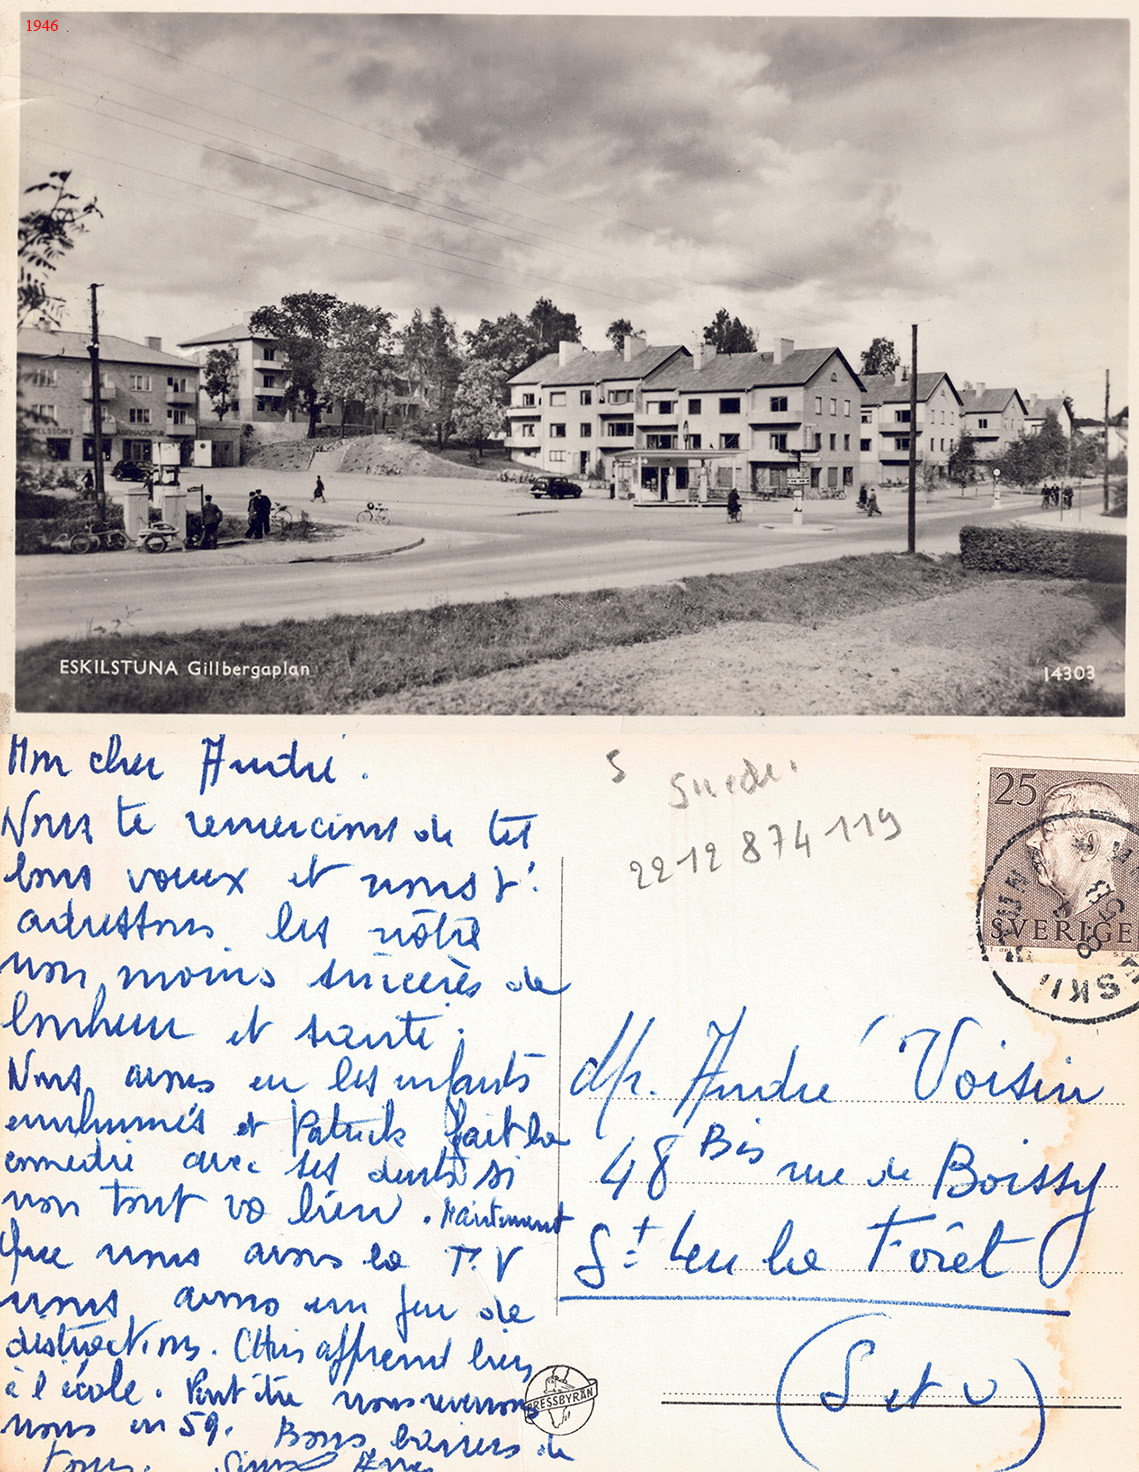 1946
ELSSONS
ESKILSTUNA Gillbergaplan
14303
Mon cher André.
Nous te remercions de tes
bons voeux et nous t'
adressons les nôtres
non moins sincères de
bonheur et santé.
Nous avons eu les enfants
enrhumés et Patrick fait la
comedie avec ses dents si
non tout va bien. Maintenant
que nous avons la T.V
nous avons un peu de
distractions. Chris apprend bien
à l'école. Peut être nous reverrons
nous en 59. Bons baisers de
tous.
S
Suede.
22-12 874 119
25
SVERIGE
ESKIL
Mr. André Voisin
48 Bis rue de Boissy
St Leu la Forêt
(S et O)
PRESSBYRÅN